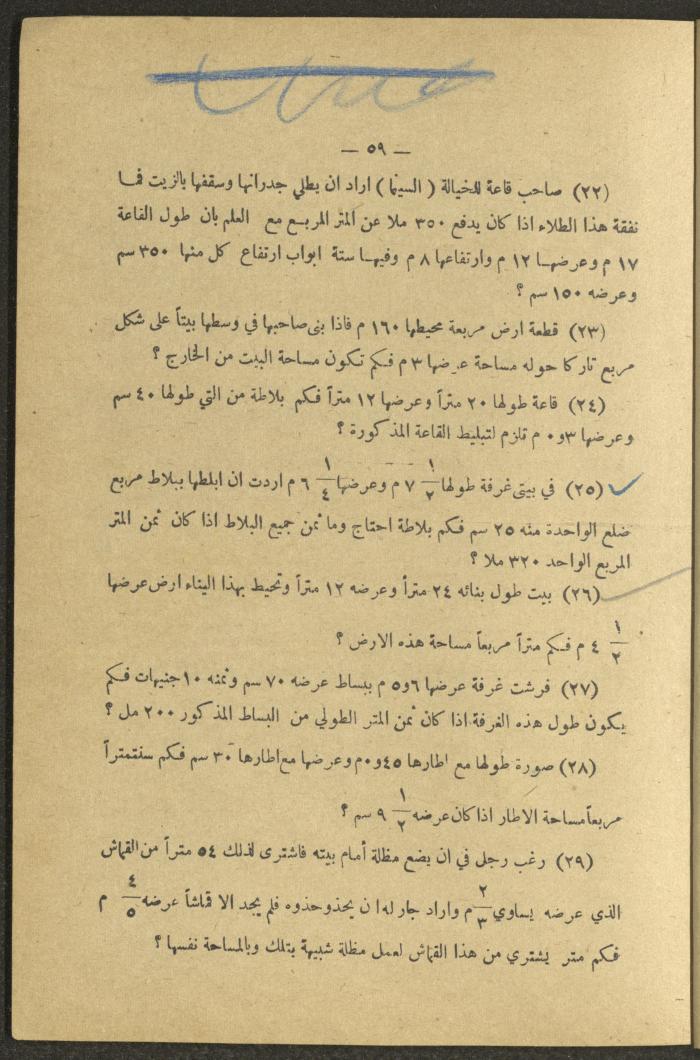 — ٥٩ —
(٢٢) صاحب قاعة للخيالة ( السينما ) اراد ان يطلي جدرانها وسقفها بالزيت فمـا
نفقة هذا الطلاء اذا كان يدفع ٣٥٠ ملا عن المتر المربـع مع العلم بان طول القاعة
١٧ م وعرضهـا ١٢ م وارتفاعها ٨ م وفيهـا ستة ابواب ارتفاع كل منها ٣٥٠ سم
وعرضه ١٥٠ سم ؟
(٢٣) قطعة ارض مربعة محيطها ١٦٠ م فاذا بنى صاحبها في وسطها بيتاً على شكل
مربع تاركا حوله مساحة عرضها ٣ م فكم تكون مساحة البيت من الخارج ؟
(٢٤) قاعة طولها ٢٠ متراً وعرضها ١٢ متراً فكم بلاطة من التي طولها ٤٠ سم
وعرضها ٣و٠ م تلزم لتبليط القاعة المذكورة ؟
(٢٥) في بيتي غرفة طولها ١/٢ ٧ م وعرضها ١/٤ ٦ م اردت ان ابلطها ببلاط مربع
ضلع الواحدة منه ٢٥ سم فكم بلاطة احتاج وما ثمن جميع البلاط اذا كان ثمن المتر
المربع الواحد ٣٢٠ ملا ؟
(٢٦) بيت طول بنائه ٢٤ متراً وعرضه ١٢ متراً وتحيط بهذا البناء ارض عرضها
١/٢ ٤ م فكم متراً مربعاً مساحة هذه الارض ؟
(٢٧) فرشت غرفة عرضها ٦و٥ م ببساط عرضه ٧٠ سم وثمنه ١٠ جنيهات فكم
يكون طول هذه الغرفة اذا كان ثمن المتر الطولي من البساط المذكور ٢٠٠ مل ؟
(٢٨) صورة طولها مع اطارها ٤٥و٠ م وعرضها مع اطارها ٣٠ سم فكم سنتمتراً
مربعاً مساحة الاطار اذا كان عرضه ١/٢ ٩ سم ؟
(٢٩) رغب رجل في ان يضع مظلة أمام بيته فاشترى لذلك ٥٤ متراً من القماش
الذي عرضه يساوي ٢/٣ م واراد جار له ان يحذو حذوه فلم يجد الا قماشاً عرضه ٤/٥ م
فكم متر يشتري من هذا القماش لعمل مظلة شبيهة بتلك وبالمساحة نفسها ؟